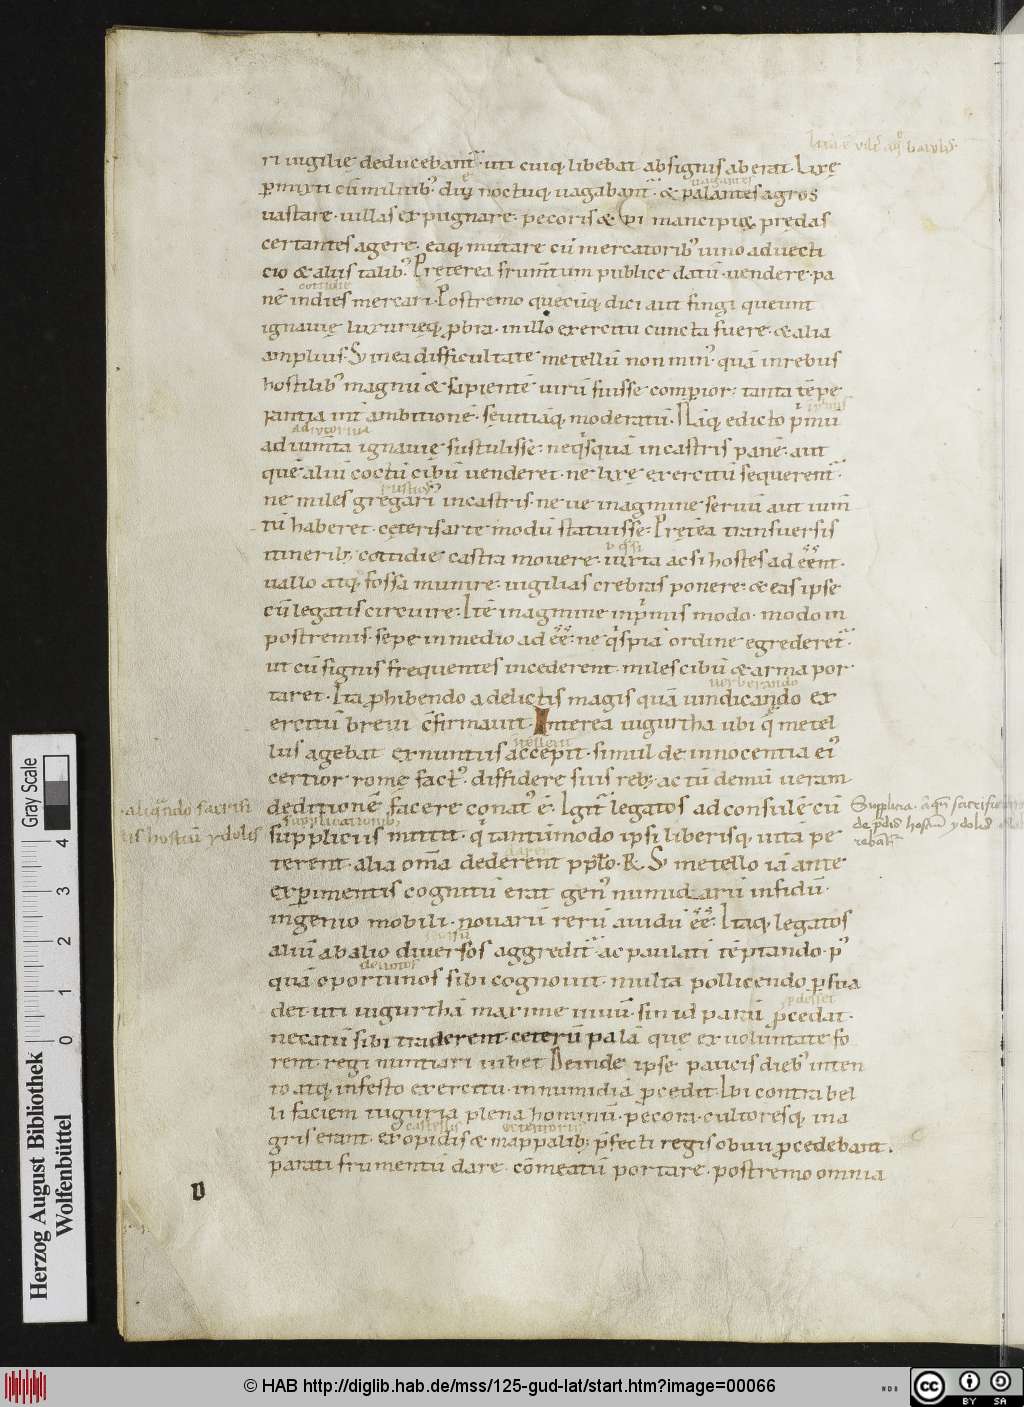 lixa ē vilis aqᵉ baiulus.
ri uigilię deducebant᷑. uti cuiq; libebat ab signis aberat. Lixę
ꝑmixti cū militibꝰ diu noctuq; uagabant᷑. & palantes agros
uagantes
uastare. uillas expugnare. pecoris & mancipiorū prędas
certantes agere. eaq; mutare cū mercatoribꝰ uino aduecti
cio & aliis talibꝰ. Pręterea frumtum publice datū uendere. pa
cottidie
nē indies mercari. Postremo quecūq; dici aut fingi queunt
ignauię luxurięq; ꝓbra. in illo exercitu cuncta fuere. & alia
amplius. S; in ea difficultate metellū non minꝰ quā in rebus
hostilibꝰ magnū & sapientē uirū fuisse comperior: tanta tēpe
rantia int̄ ambitionē. seuitiāq; moderatū. Nāq; edicto pⁱmū
adiutoria
adiumta ignauię sustulisse: neqⁱsquā in castris panē. aut
quē aliū coctū cibū uenderet. ne lixę exercitū sequerent᷑.
rusticꝰ
ne miles gregari in castris. ne ue in agmine seruū aut ium̄
tū haberet. cęteris arte modū statuisse. Pręt̄ea transuersis
itineribꝫ cottidie castra mouere. iuxta ac si hostes adēent.
uallo atq; fossa munire. uigilias crebras ponere. & eas ipse
cū legatis circuire. Itē in agmine inpⁱmis modo. modo in
postremis. sępe in medio adēē. ne qⁱspiā ordine egrederet᷑.
ut cū signis frequentes incederent. miles cibū & arma por
uerberando
taret. Ita ꝓhibendo a delictis magis quā uindicando ex
ercitū breui cfirmauit. Interea iugurtha ubi q̄ metel
lus agebat ex nuntiis accepit. simul de innocentia eiꝰ
certior romę factꝰ. diffidere suis rebꝫ. ac tū demū ueram
deditionē facere conatꝰ ē. Igit᷑ legatos ad consulē cū
supplicationibꝫ
suppliciis mittit. qⁱ tantūmodo ipsi liberisq; uitā pe
terent. alia om̄a dederent pp̄lo. R. S; metello iā ante
exꝑimentis cognitū erat genꝰ numidarū infidū.
ingenio mobili. nouarū rerū auidū ēē. Itaq; legatos
aliū ab alio diuersos aggredit᷑. ac paulati tēptando. pꝰ
quā oportunos sibi cognouit. multa pollicendo ꝑsua
det. uti iugurthā maxime uiuū. sin id parū ꝓcedat.
necatū sibi traderent. ceterū palā que ex uoluntate fo
rent. regi nuntiari iubet. Deinde ipse paucis diebꝰ inten
to atq; infesto exercitu. in numidiā ꝓcedit. Ubi contra bel
li faciem tuguria plena hominū. pecora. cultoresq; in a
castellis
gris erant. ex opidis & mappalibꝫ p̄fecti regis obuii ꝓcedebant.
parati frumentū dare. cōmeatū portare. postremo omnia
V
Herzog August Bibliothek
Wolfenbüttel
Gray Scale
0 1 2 3 4
© HAB http://diglib.hab.de/mss/125-gud-lat/start.htm?image=00066
cc BY SA